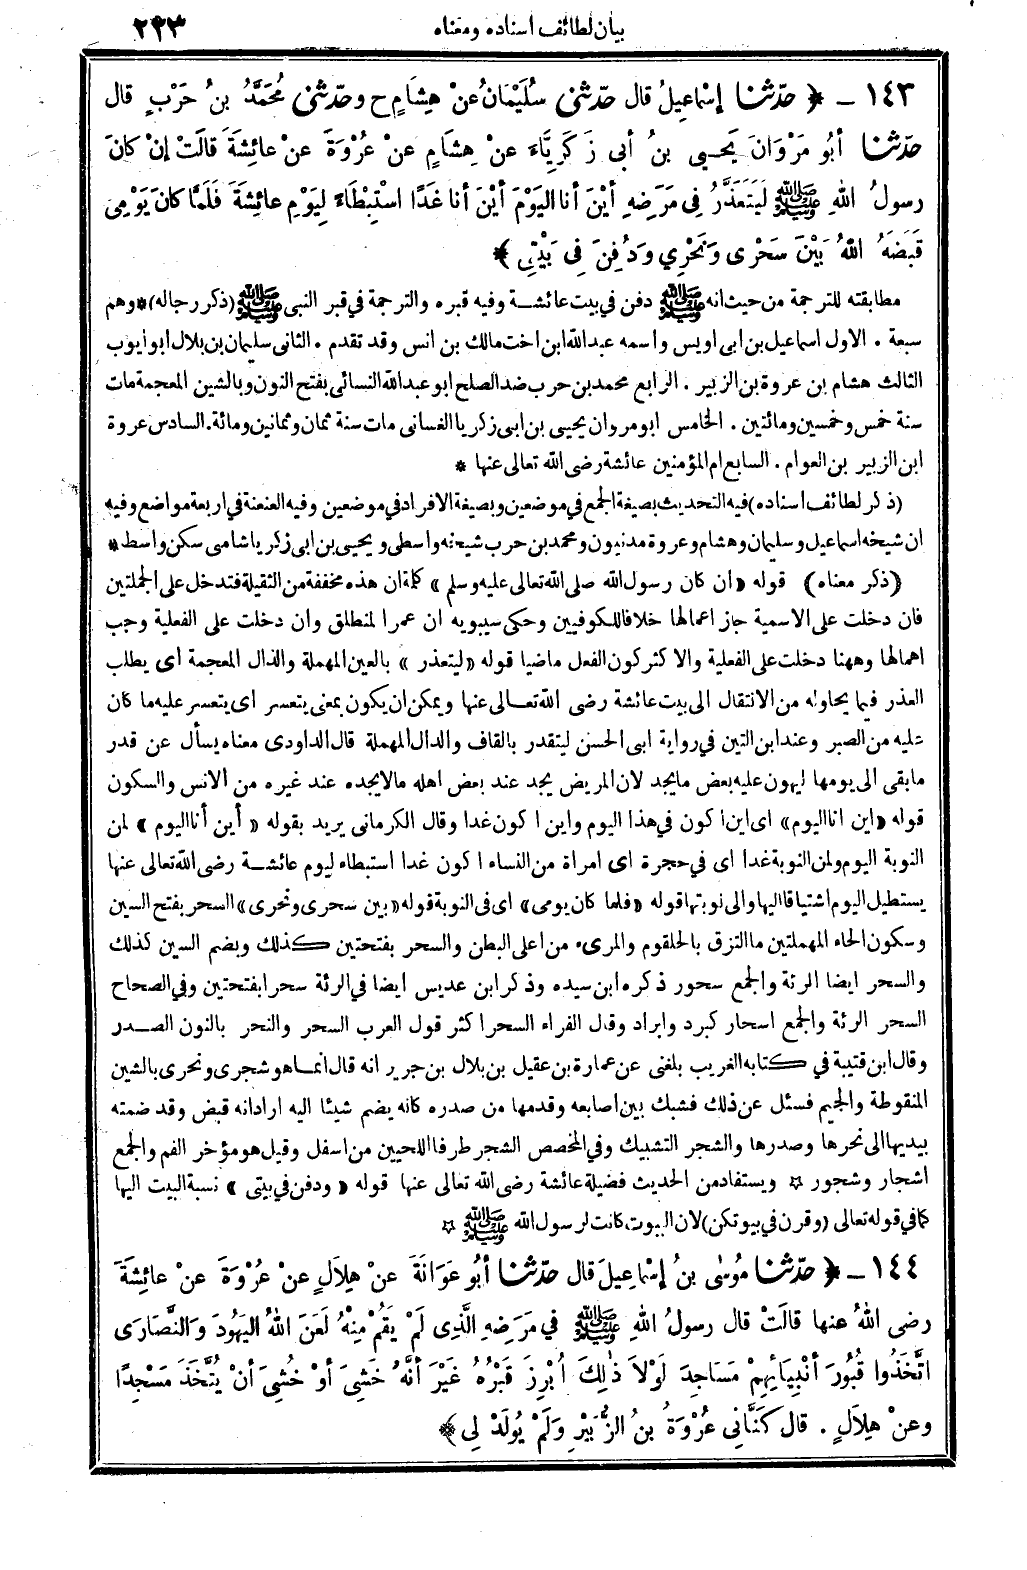 بيان لطائف اسناده ومعناه ٢٢٣
١٤٣ ـ ﴿ حدّثنا إسْماعِيلُ قال حدّثني سُلَيْمَانُ عنْ هِشَامٍ ح وحدّثني مُحَمَّدُ بنُ حَرْبٍ قال
حدّثنا أبُو مَرْوَانَ يَحْيى بنُ أبي زَكَرِيَّاءَ عنْ هِشامٍ عنْ عُرْوَةَ عنْ عائِشَةَ قالَتْ إنْ كانَ
رسولُ اللهِ ﷺ لَيَتَعَذَّرُ في مَرَضِهِ أيْنَ أنا اليَوْمَ أيْنَ أنا غَدًا اسْتِبْطَاءً لِيَوْمِ عائِشَةَ فَلَمَّا كانَ يَوْمِي
قَبَضَهُ اللهُ بَيْنَ سَحْرِى ونَحْرِي ودُفِنَ في بَيْتِي ﴾
مطابقته للترجمة من حيث انه ﷺ دفن في بيت عائشة وفيه قبره والترجمة في قبر النبي ﷺ (ذكر رجاله) * وهم
سبعة . الاول اسماعيل بن ابى اويس واسمه عبدالله ابن اخت مالك بن انس وقد تقدم . الثانى سليمان بن بلال ابو ايوب
الثالث هشام بن عروة بن الزبير . الرابع محمد بن حرب ضد الصلح ابو عبد الله النسائى بفتح النون وبالشين المعجمة مات
سنة خمس وخمسين ومائتين . الخامس ابو مروان يحيى بن ابى زكريا الغسانى مات سنة ثمان وثمانين ومائة . السادس عروة
ابن الزبير بن العوام . السابع ام المؤمنين عائشة رضى الله تعالى عنها *
(ذكر لطائف اسناده) فيه التحديث بصيغة الجمع في موضعين وبصيغة الافراد في موضعين وفيه العنعنة في اربعة مواضع وفيه
ان شيخه اسماعيل وسليمان وهشام وعروة مدنيون ومحمد بن حرب شيخه واسطى ويحيى بن ابى زكريا شامى سكن واسط *
(ذكر معناه) قوله «ان كان رسول الله صلى الله تعالى عليه وسلم » كلمة ان هذه مخففة من الثقيلة فتدخل على الجملتين
فان دخلت على الاسمية جاز اعمالها خلافا للكوفيين وحكى سيبويه ان عمرا لمنطلق وان دخلت على الفعلية وجب
اهمالها وههنا دخلت على الفعلية والاكثر كون الفعل ماضيا قوله «ليتعذر » بالعين المهملة والذال المعجمة اى يطلب
العذر فيما يحاوله من الانتقال الى بيت عائشة رضى الله تعـالى عنها ويمكن ان يكون بمعنى يتعسر اى يتعسر عليه ما كان
عليه من الصبر وعند ابن التين في رواية ابى الحسن ليتقدر بالقاف والدال المهملة قال الداودى معناه يسأل عن قدر
مابقى الى يومها ليهون عليه بعض مايجد لان المريض يجد عند بعض اهله مالايجده عند غيره من الانس والسكون
قوله «اين انا اليوم» اى اين اكون في هذا اليوم واين اكون غدا وقال الكرمانى يريد بقوله « أين أنا اليوم » لمن
النوبة اليوم ولمن النوبة غدا اى في حجرة اى امراة من النساء اكون غدا استبطاء ليوم عائشة رضى الله تعالى عنها
يستطيل اليوم اشتياقا اليها والى نوبتها قوله «فلما كان يومى» اى فى النوبة قوله «بين سحرى ونحرى» السحر بفتح السين
وسكون الحاء المهملتين ماالتزق بالحلقوم والمرىء من اعلى البطن والسحر بفتحتين كذلك وبضم السين كذلك
والسحر ايضا الرئة والجمع سحور ذكره ابن سيده وذكر ابن عديس ايضا في الرئة سحرا بفتحتين وفي الصحاح
السحر الرئة والجمع اسحار كبرد وابراد وقال الفراء السحر اكثر قول العرب السحر والنحر بالنون الصـدر
وقال ابن قتيبة في كتابه الغريب بلغنى عن عمارة بن عقيل بن بلال بن جرير انه قال انمـا هو شجرى ونحرى بالشين
المنقوطة والجيم فسئل عن ذلك فشبك بين اصابعه وقدمها من صدره كانه يضم شيئا اليه ارادانه قبض وقد ضمته
بيديها الى نحرها وصدرها والشجر التشبيك وفي المخصص الشجر طرفا اللحيين من اسفل وقيل هو مؤخر الفم والجمع
اشجار وشجور * ويستفاد من الحديث فضيلة عائشة رضى الله تعالى عنها قوله « ودفن في بيتى » نسبة البيت اليها
كما في قوله تعالى (وقرن في بيوتكن) لان البيوت كانت لرسول الله ﷺ *
١٤٤ ـ ﴿ حدّثنا مُوسَى بنُ إسْماعِيلَ قال حدّثنا أبُو عَوَانَةَ عنْ هِلَالٍ عنْ عُرْوَةَ عنْ عائِشَةَ
رضى اللهُ عنها قالَتْ قال رسولُ اللهِ ﷺ في مَرَضِهِ الَّذِى لَمْ يَقُمْ مِنْهُ لَعَنَ اللهُ اليَهُودَ والنَّصَارَى
اتَّخَذُوا قُبُورَ أنْبِيَائِهِمْ مَسَاجِدَ لَوْلاَ ذٰلِكَ أُبْرِزَ قَبْرُهُ غَيْرَ أنَّهُ خَشِيَ أوْ خُشِيَ أنْ يُتَّخَذَ مَسْجِدًا
وعنْ هِلَالٍ . قال كَنَّانِي عُرْوَةُ بنُ الزُّبَيْرِ ولَمْ يُولَدْ لِي ﴾